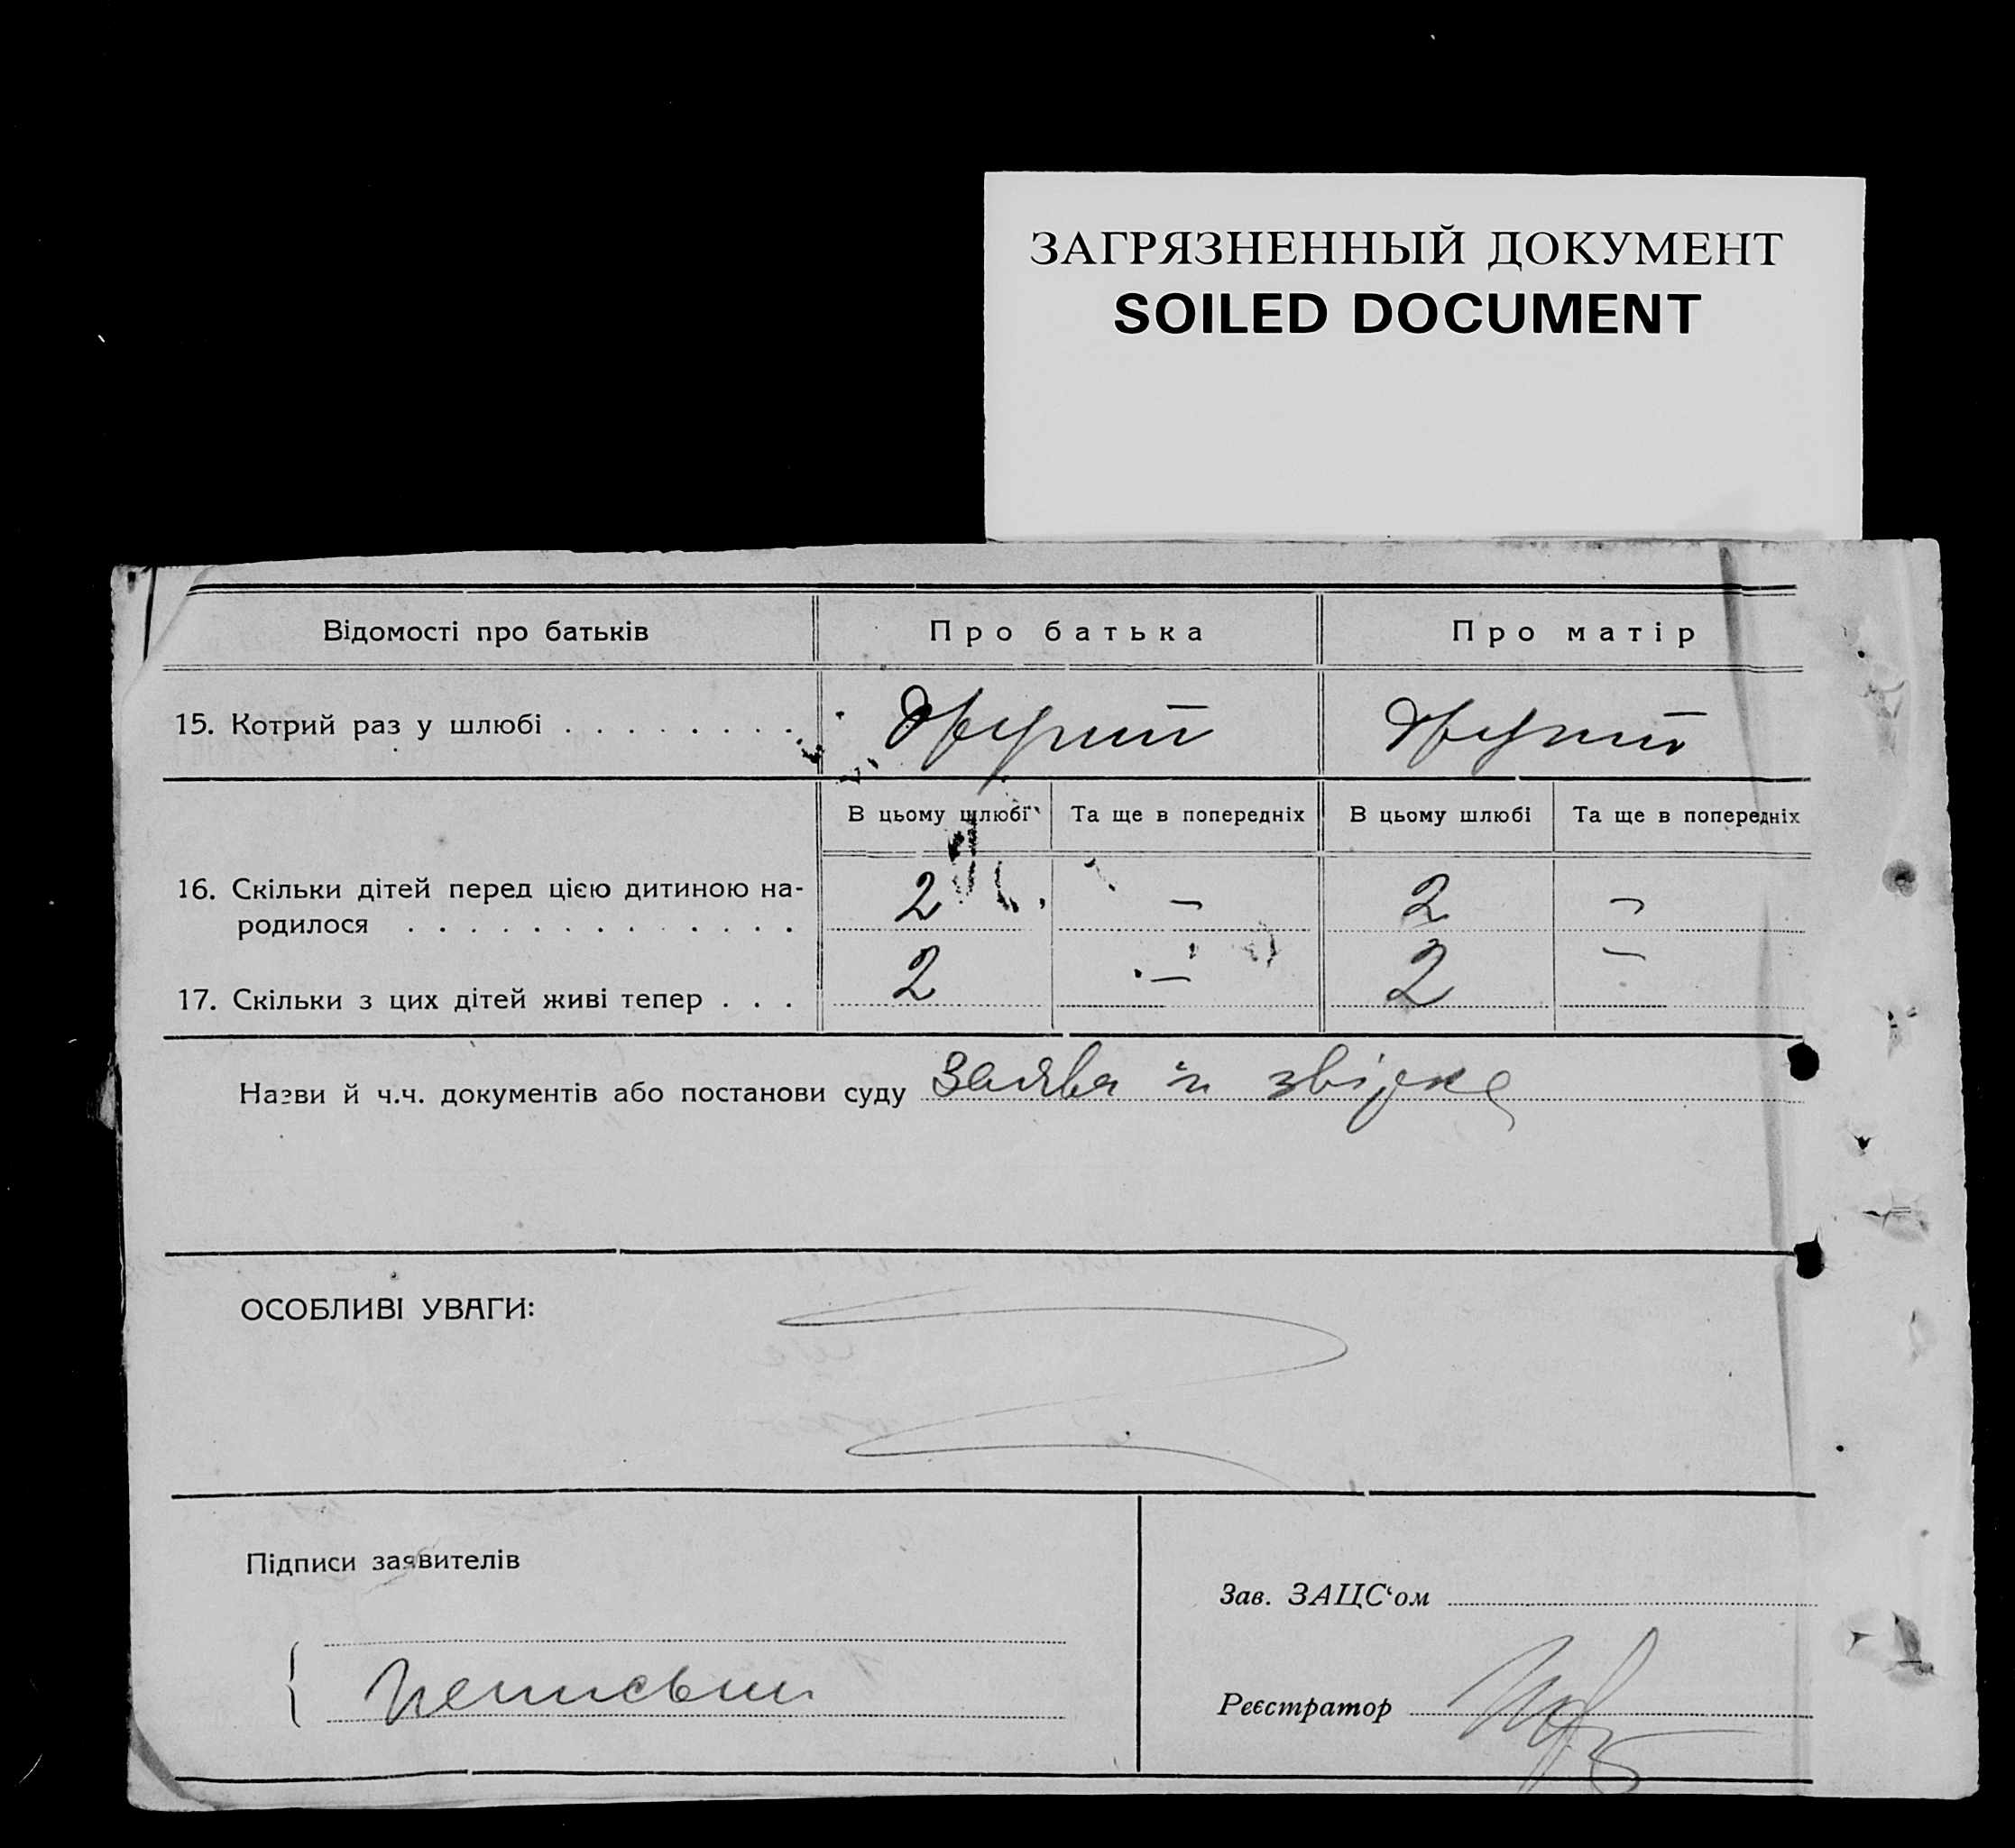 ЗАГРЯЗНЕННЫЙ ДОКУМЕНТ
SOILED DOCUMENT
Відомості про батьків Про батька Про матір
15. Котрий раз у шлюбі . . . . . . . . другий другий
В цьому шлюбі Та ще в попередніх В цьому шлюбі Та ще в попередніх
16. Скільки дітей перед цією дитиною на-
родилося . . . . . . . . . . . . . 2 — 2 —
17. Скільки з цих дітей живі тепер . . . 2 — 2 —
Назви й ч.ч. документів або постанови суду заява й
ОСОБЛИВІ УВАГИ:
Підписи заявителів
Зав. ЗАЦС‘ом
Реєстратор